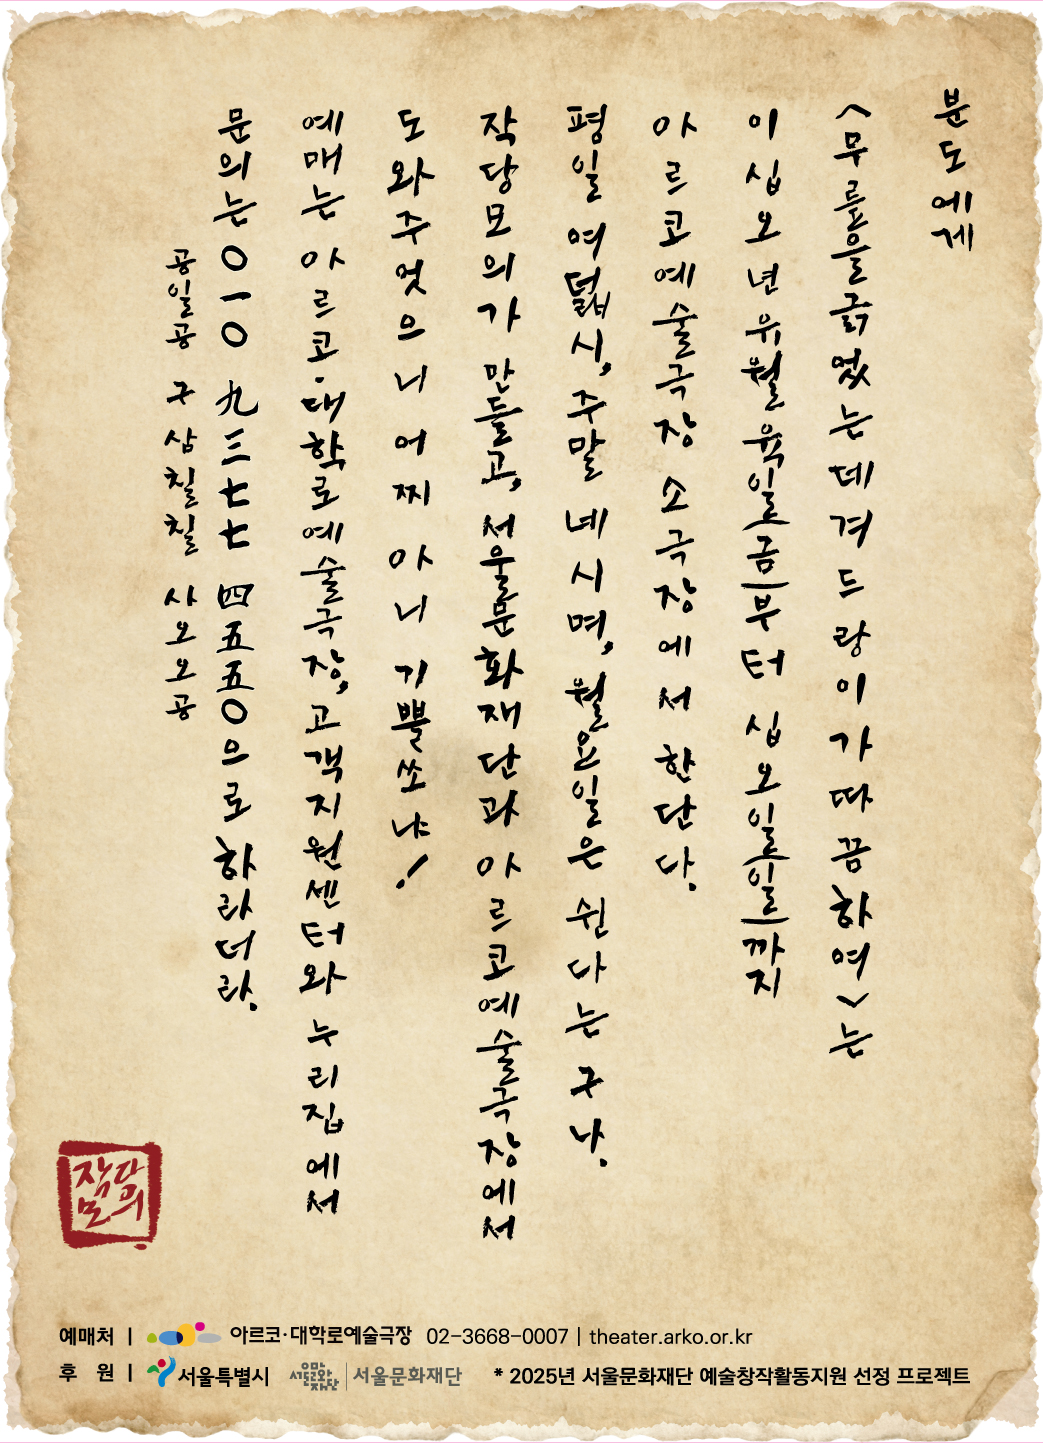 분도에게
<무릎을긁었는데겨드랑이가따끔하여>는
이십오년유월육일(금)부터 십오일(일)까지
아르코예술극장 소극장에서 한단다.
평일 여덟시, 주말 네시며, 월요일은 쉰다는구나.
작당모의가 만들고, 서울문화재단과 아르코예술극장에서
도와주엇으니 어찌 아니 기쁠쏘냐!
예매는 아르코·대학로예술극장, 고객지원센터와 누리집에서
문의는 〇一〇 九三七七 四五五〇으로 하라더라.
공일공 구삼칠칠 사오오공
작당모의
예매처 | 아르코·대학로예술극장 02-3668-0007 | theater.arko.or.kr
후 원 | 서울특별시 서울문화재단 * 2025년 서울문화재단 예술창작활동지원 선정 프로젝트